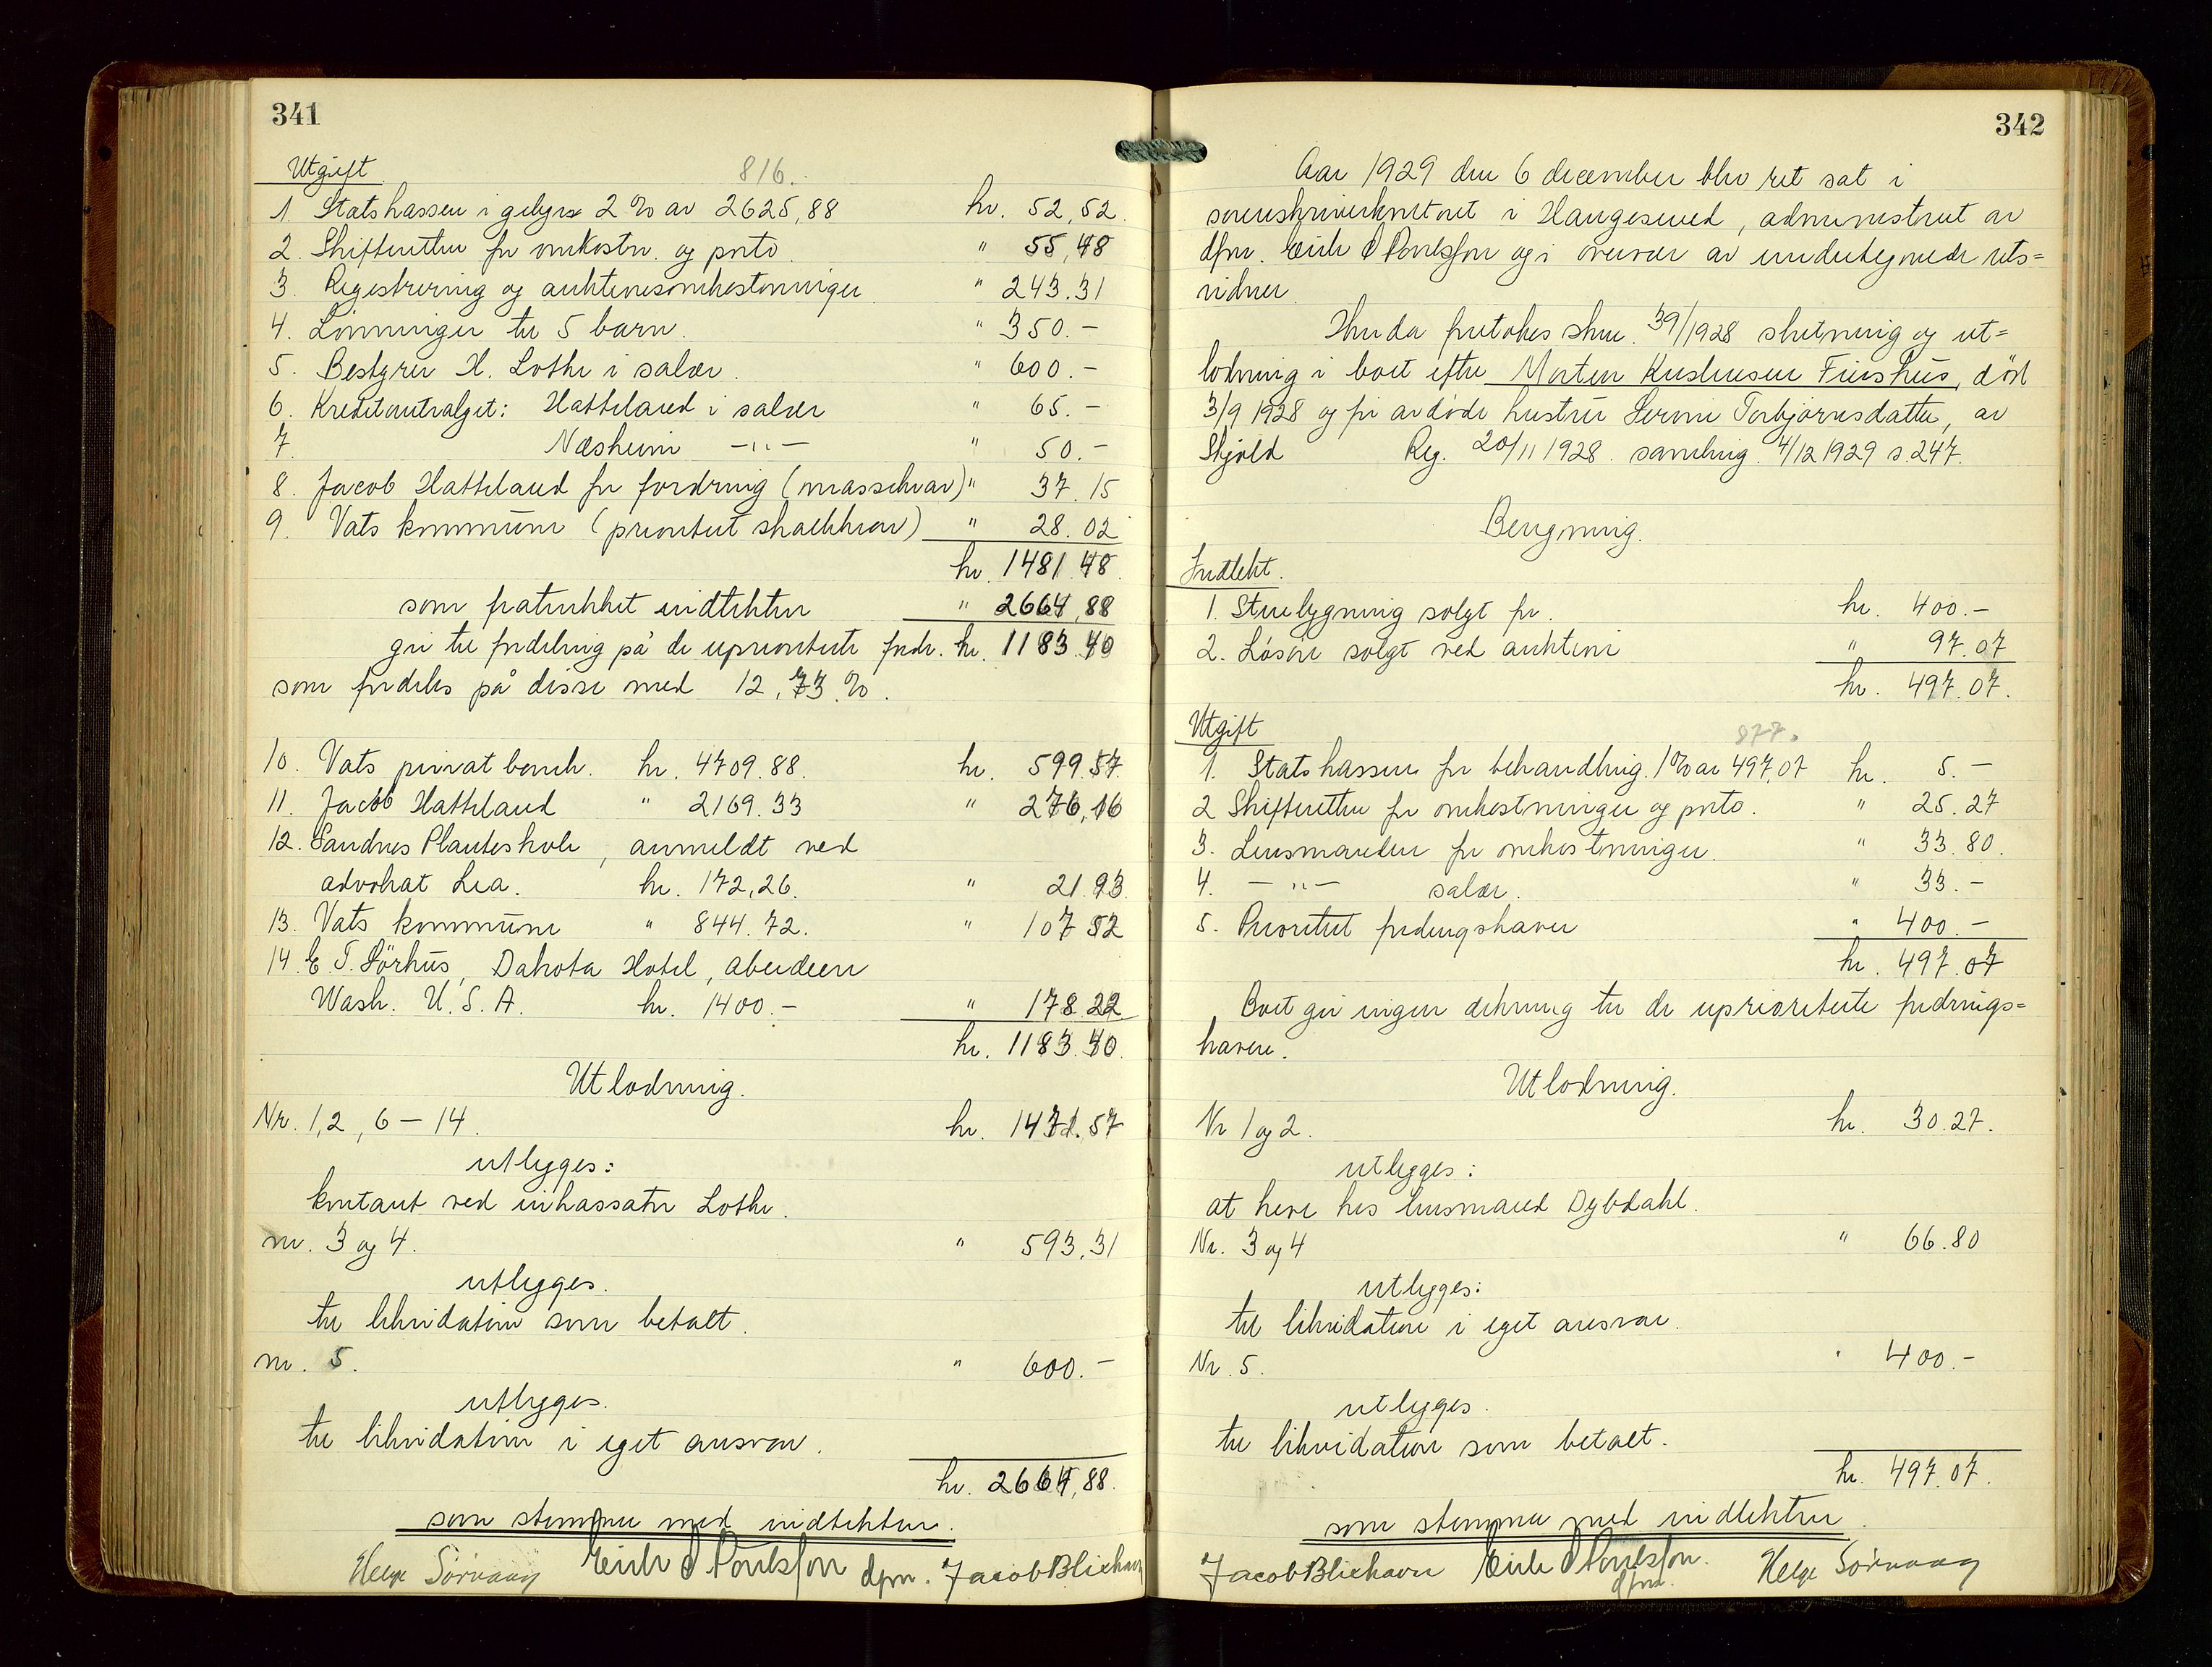 341
Utgift
816.
1. Statskassen i gebyr 2 % av 2625,88 kr. 52,52.
2. Skifteretten for omkostn. og porto. " 55,48
3. Registrering og auktionsomkostninger " 243.31
4. Lönninger til 5 barn. " 350.-
5. Bestyrer H. Lothe i salær. " 600.-
6. Kreditorutvalget: Hatteland i salær " 65.-
7. Næsheim -"- " 50.-
8. Jacob Hatteland for fordring (massekrav) " 37.15
9. Vats kommune (prioritert skattkrav) " 28.02
kr. 1481.48.
som fratrukket indtekten " 2664,88
gir til fordeling på de uprioriterte fordr. kr. 1183.40
som fordeles på disse med 12,73 %.
10. Vats privatbank. kr. 4709.88. kr. 599.57.
11. Jacob Hatteland " 2169.33 " 276,16
12. Sandnes Planteskole, anmeldt ved
advokat Lea. kr. 172,26. " 21.93
13. Vats kommune " 844.72. " 107 52
14. E. T. Sörhus, Dakota Hotel, Aberdeen
Wash. U. S. A. kr. 1400.- " 178.22
kr. 1183.40.
Utlodning.
Nr. 1,2, 6 - 14. kr. 1471.57
utlegges:
kontant ved inkassator Lothe.
nr. 3 og 4. " 593,31
utlegges.
til likvidation som betalt.
nr. 5. " 600.-
utlegges.
til likvidation i eget ansvar.
kr. 2664,88.
som stemmer med indtekten.
Helge Sörvaag Eirik O Poulsson dfm. Jacob Bliekavn
342
Aar 1929 den 6 december blev ret sat i
sorenskriverkontoret i Haugesund, administrert av
dfm. Eirik O Poulsson og i overvær av undertegnede rets=
vidner.
Hvorda foretokes skn. 39/1928 slutning og ut=
lodning i boet efter Morten Kristensen Finshus, död
3/9 1928 og før avdöde hustru Serine Torbjörnsdatter, av
Skjold Reg. 20/11 1928. samling. 4/12 1929 s. 247.
Beregning.
Indtekt.
1. Stuebygning solgt for. kr. 400.-
2. Lösöre solgt ved auktion " 97.07
kr. 497.07.
Utgift
877.
1. Statskassen for behandling. 1 % av 497,07 kr. 5.-
2 Skifteretten for omkostninger og porto. " 25.27
3. Lensmanden for omkostninger. " 33.80.
4. -"- salær. " 33.-
5. Prioritert fordringshaver " 400.-
kr. 497.07
Boet gir ingen dekning til de uprioriterte fordrings=
havere.
Utlodning.
Nr 1 og 2. kr. 30.27.
utlegges:
at heve hos lensmand Dybdahl.
Nr. 3 og 4 " 66.80
utlegges:
til likvidation i eget ansvar.
Nr. 5. " 400.-
utlegges.
til likvidation som betalt.
kr. 497.07.
som stemmer med indtekten.
Jacob Bliekavn Eirik O Poulsson. dfm. Helge Sörvaag